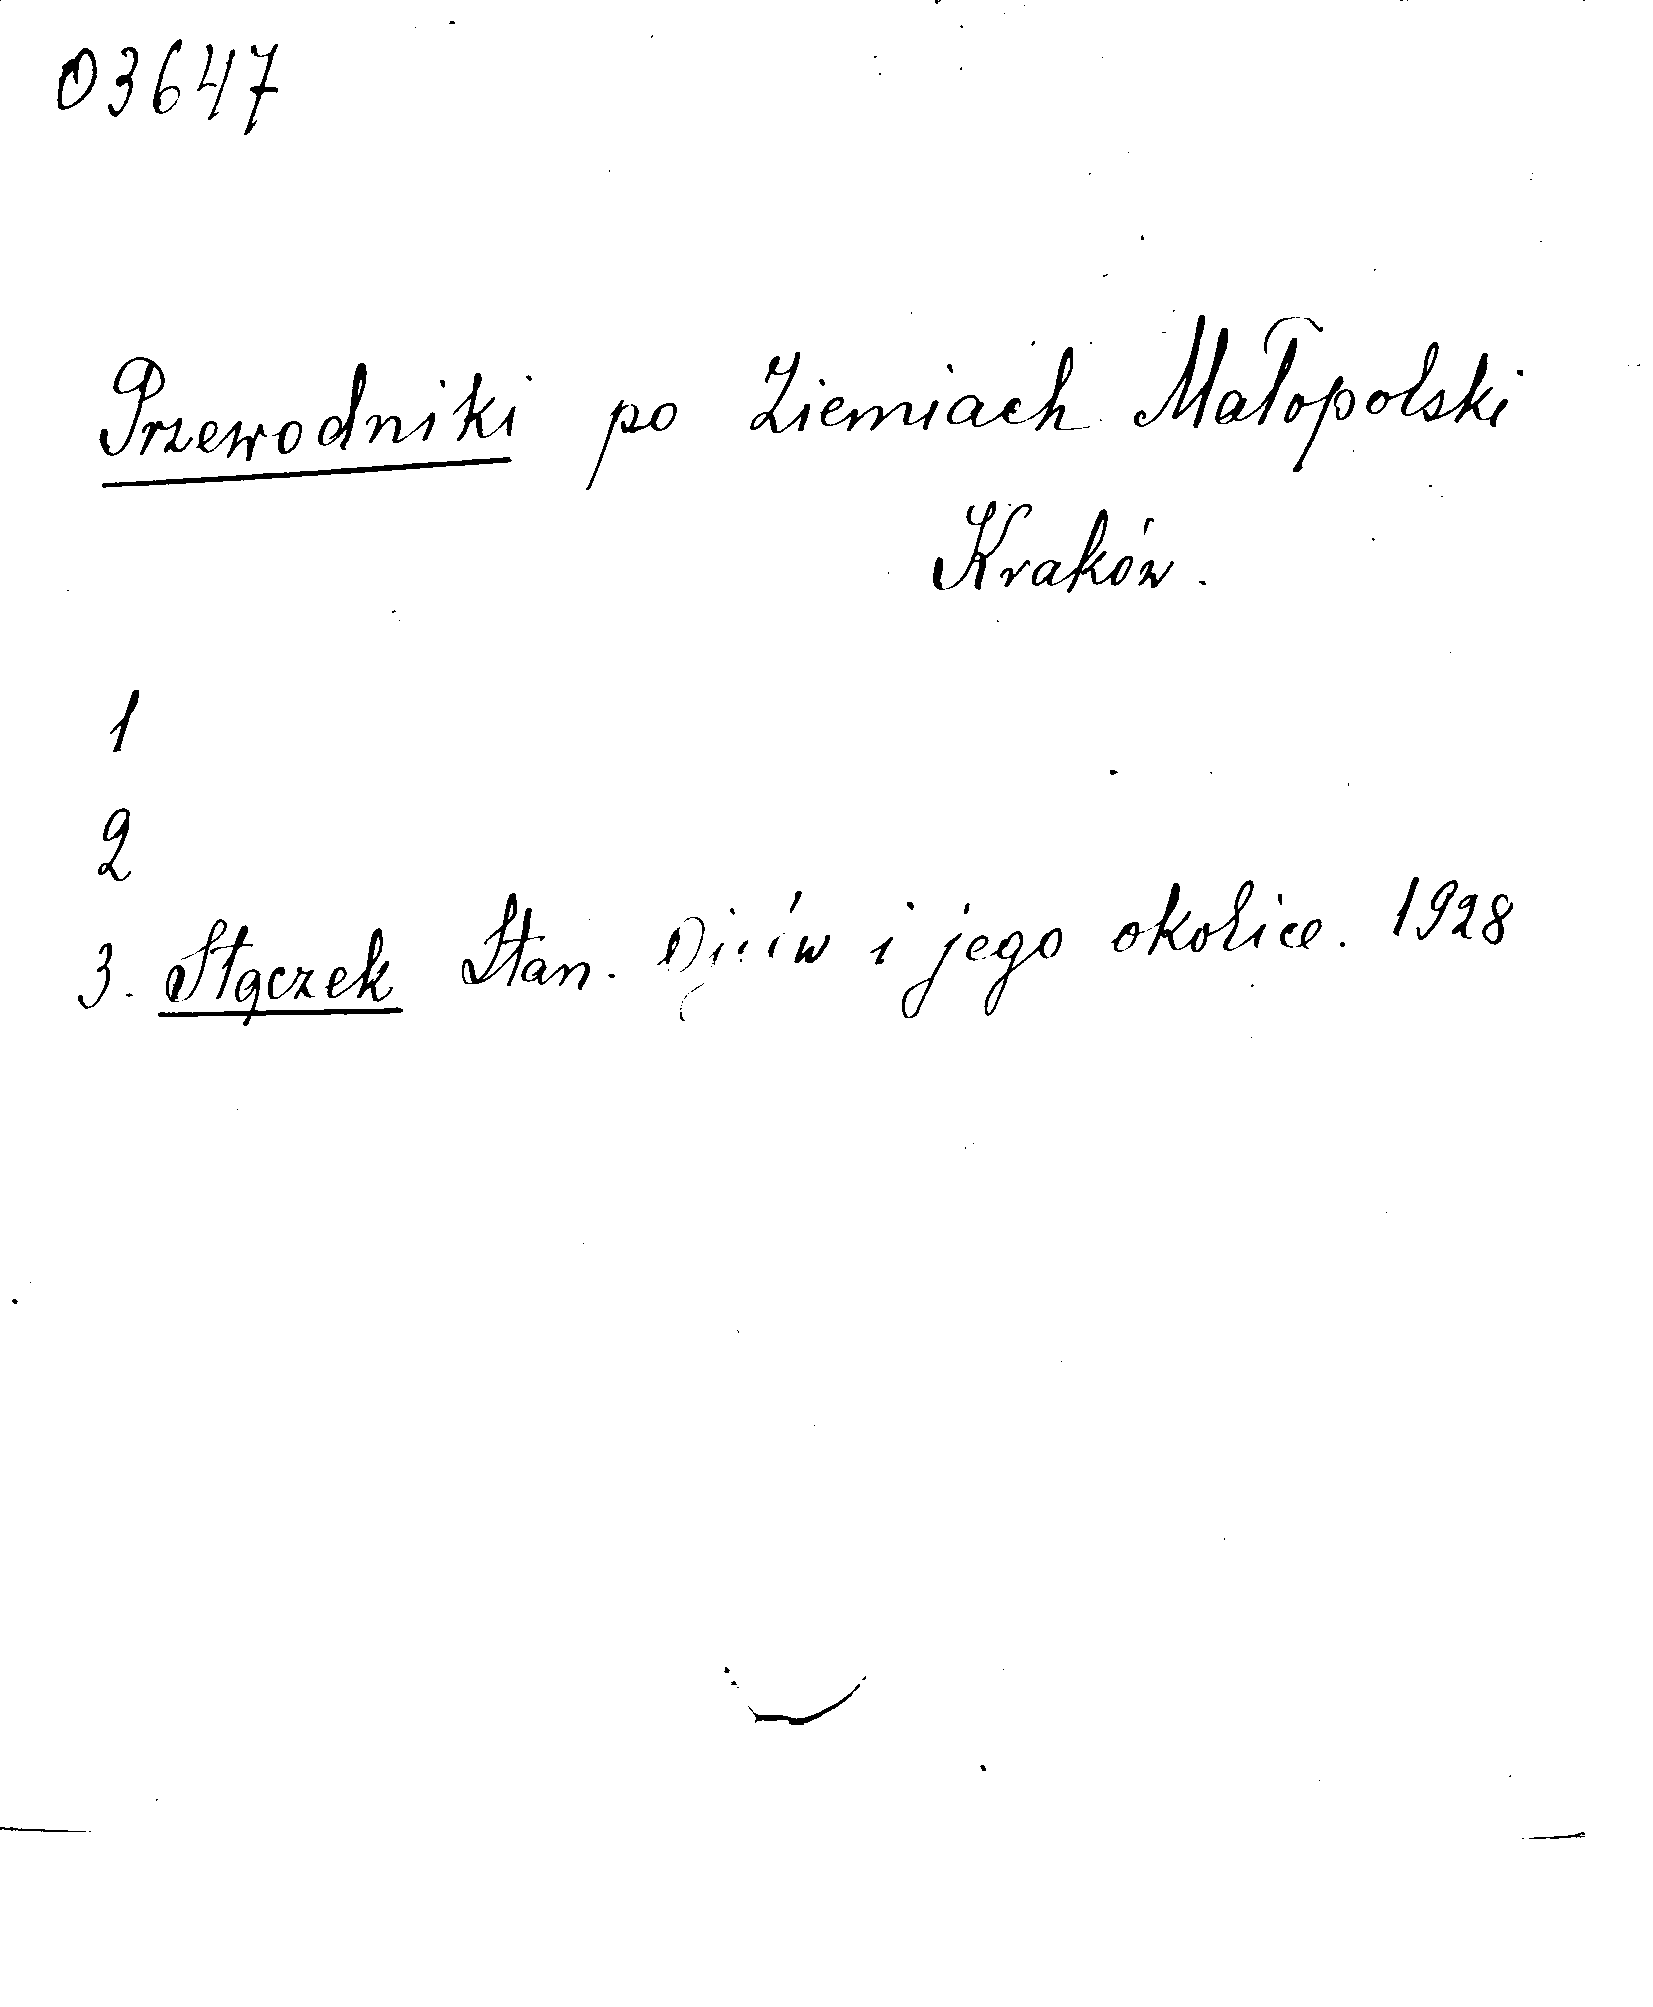 03647
Przewodniki po Ziemiach Małopolski
Kraków.
1
2
3. Stączek Stan. Ojców i jego okolice. 1928